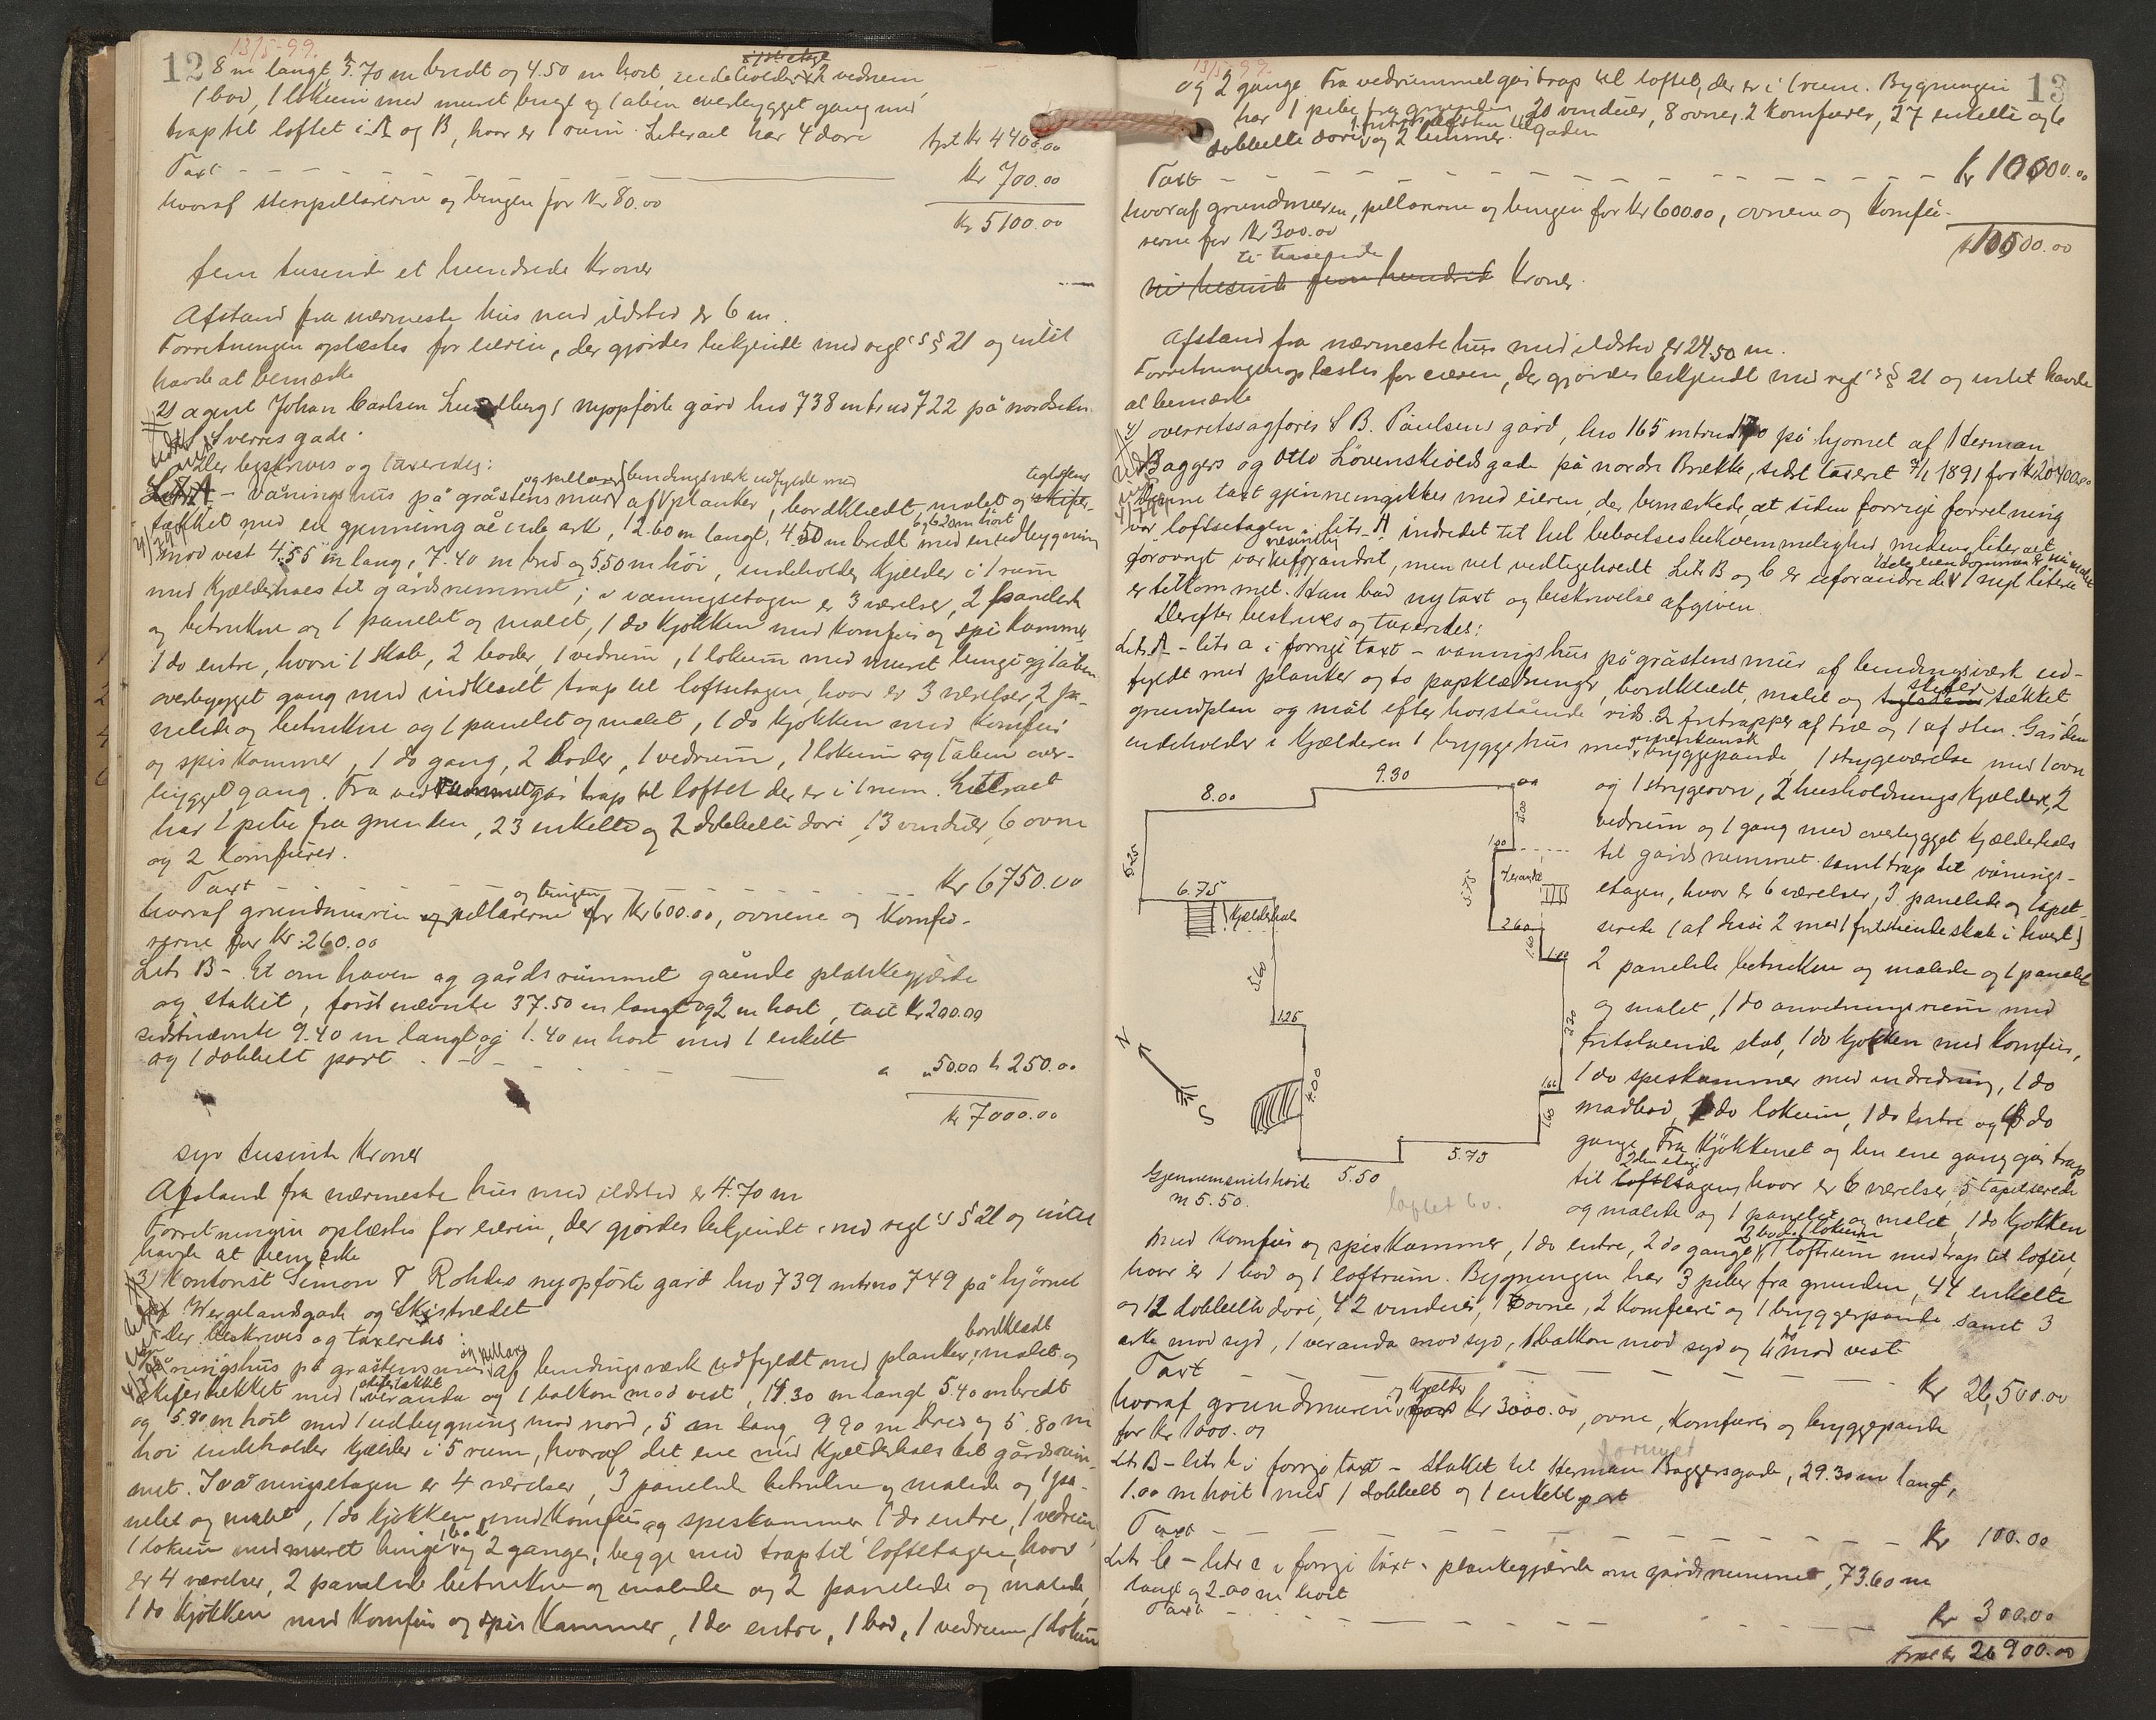 12 13/5-99.
8 m langt, 5.70 m bredt og 4.50 m höit, indeholder 2 vedrum,
1 bod, 1 lokum med muret binge og 1 aben overbygget gang med
trap til loftet i A og B, hvor er 1 rum. Literaet har 4 döre
tpt Kr 4400.00
Taxt - - - - - - Kr 700.00
hvoraf stenpillarerne og bingen for Kr 80.00
Kr 5100.00
fem tusinde et hundrede Kroner
Afstand fra nærmeste hus med ildsted er 6 m.
Forretningen oplæstes for eieren, der gjordes bekjendt med regl's § 21 og intet
havde at bemærke
2) agent Johan Carlsen Lundbergs nyopförte gård lno 738 mtrno 722 på nordsiden
af Sverres gade.
Der beskrives og taxeredes:
Litr A - Våningshus på gråstens mur og pillarer af bindingsværk udfyldt med planker, bordklædt, malet og teglstens
tækket med en gjennemgående ark, 12.60 m langt, 4.50 m bredt 6.20 m höit med en udbygning
mod vest 4.55 m lang, 7.40 m bred og 5.50 m höi, indeholder Kjælder i 1 rum
med Kjælderhals til gårdsrummet; i våningsetagen er 3 værelser, 2 panelede
og betrukne og 1 panelet og malet, 1 do Kjökken med Komfur og spiskammer
1 do entre, hvori 1 skab, 2 boder, 1 vedrum, 1 lokum med muret binge og 1 aben
overbygget gang med indklædt trap til loftsetagen, hvor er 3 værelser, 2 pa-
nelede og betrukne og 1 panelet og malet, 1 do Kjökken med Komfur
og spiskammer, 1 do gang, 2 boder, 1 vedrum, 1 lokum og 1 aben over-
bygget gang. Fra vedrummet går trap til loftet der er i 1 rum. Literaet
har 1 pibe fra grunden, 23 enkelte og 2 dobbelte döre, 13 vinduer, 6 ovne
og 2 Komfurer.
Taxt - - - - - - Kr 6750.00
hvoraf grundmuren pillarerne og bingen for Kr 600.00, ovnene og Komfu-
rerne for Kr 260.00
Litr B - Et om haven og gårdsrummet gående plankegjærde
og stakit, förstnævnte 37.50 m langt og 2 m höit, taxt Kr 200.00
sidstnævnte 9.40 m langt og 1.40 m höit med 1 enkelt
og 1 dobbelt port - - - - " 50.00 Kr 250.00
Kr 7000.00
syv tusinde Kroner
Afstand fra nærmeste hus med ildsted er 4.70 m
Forretningen oplæstes for eieren, der gjordes bekjendt med regl's § 21 og intet
havde at bemærke
3) Kontorist Simon T Rohdes nyopförte gård lno 739 mtrno 749 på hjörnet
af Wergelandsgade og Skistredet
Der beskrives og taxeredes:
Våningshus på gråstensmur og pillarer af bindingsværk udfyldt med planker, bordklædt malet og
skifertækket med 1 skifertækket veranda og 1 balkon mod vest, 14.30 m langt 5.40 m bredt
og 5.80 m höit med 1 udbygning mod nord, 5 m lang 9.90 m bred og 5.80 m
höi indeholder Kjælder i 5 rum, hvoraf det ene med Kjælderhals til gårdsrum-
met. I våningsetagen er 4 værelser, 3 panelede betrukne og malede og 1 pa-
nelet og malet, 1 do Kjökken med Komfur og spiskammer 1 do entre, 1 vedrum,
1 lokum med muret binge, 1 bod og 2 gange, begge med trap til loftetagen, hvor
er 4 værelser, 2 panelede betrukne og malede og 2 panelede og malede,
1 do Kjökken med Komfur og spiskammer, 1 do entre, 1 bod, 1 vedrum, 1 lokum
13/5-99. 13
og 2 gange. Fra vedrummet går trap til loftet, der er i 1 rum. Bygningen
har 1 pibe fra grunden 20 vinduer, 8 ovne, 2 Komfurer, 27 enkelte og 6
dobbelte döre, og 2 lemmer. til gaden
Taxt - - - - - - Kr 10000.00
hvoraf grundmuren, pillarerne og bingen for Kr 600.00, ovnene og Komfu-
rerne for Kr 300.00
Kr 10000.00
ti tusinde
ni tusinde fem hundrede Kroner.
Afstand fra nærmeste hus med ildsted er 24.50 m.
Forretningen oplæstes for eieren, der gjordes bekjendt med regl's § 21 og intet havde
at bemærke
4) overretssagförer S B. Paulsens gård, lno 165 mtrno 170 på hjörnet af Herman
Baggers og Otto Lövenskiolds gade på nordre Brække, sidst taxeret 7/1 1891 for Kr 20400.00
Denne taxt gjennemgikkes med eieren, der bemærkede, at siden forrige forretning
var loftsetagen i litr. A indredet til hel beboelsesbekvemmelighed medens literaet
forövrigt var væsentlig uforandret, men vel vedligeholdt. Litr B og C er uforandrede, 1 nyt litera
er tilkommet. Han bad ny taxt og beskrivelse afgiven.
Derefter beskrives og taxeredes:
Litr. A - litr a i forrige taxt - våningshus på gråstensmur af bindingsværk ud-
fyldt med planker og to papklædninger, bordklædt, malet og skifer tækket,
grundplan og mål efter hosstående rids. 2 fritrapper af træ og 1 af sten. Gården
indeholder i Kjælderen 1 bryggehus med amerikansk bryggepande, 1 strygeværelse med 1 ovn
og 1 strygeovn, 2 husholdningskjældere, 2
vedrum og 1 gang med overbygget Kjælderhals
til gårdsrummet samt trap til vånings-
etagen, hvor er 6 værelser, 3 panelede og tapet-
serede (af disse 2 med 1 fritstående skab i hvert)
2 panelede betrukne og malede og 1 panelet
og malet, 1 do anretningsrum med
fritstående skab, 1 do kjökken med Komfur,
1 do spiskammer med indredning, 1 do
madbod, 1 do lokum, 1 do entre og 3 do
gange. Fra Kjökkenet og den ene gang går trap
til 2den etage loftsetagen, hvor er 6 værelser, 5 tapetserede
og malede og 1 panelet og malet, 1 do Kjökken
8.00
9.30
1.00
Veranda
5.75
2.60
8.25
6.75
Kjælderhals
5.60
1.25
4.00
5.50
5.75
N
S
Gjennemsnitshöide
m 5.50.
loftet 60.
med Komfur og spiskammer, 1 do entre, 2 do gange, 2 boder 1 lokum 1 loftrum med trap til loftet,
hvor er 1 bod og 1 loftrum. Bygningen har 3 piber fra grunden, 44 enkelte
og 12 dobbelte döre, 42 vinduer, ovne, 2 Komfurer og 1 bryggepande samt 3
arke mod syd, 1 veranda mod syd, 1 balkon mod syd og mod vest
Taxt - - - - - - Kr 26,500.00
hvoraf grundmuren og kjælder for Kr 3000.00, ovne, Komfurer og bryggepande
for Kr 1000.00
Litr B - litr b i forrige taxt - Stakit til Herman Baggersgade, 29.30 m langt,
fornyet
1.00 m höit med 1 dobbelt og 1 enkelt port
Taxt - - - - - - Kr 100.00
Litr C - litr c i forrige taxt - plankegjærde om gårdsrummet, 73.60 m
langt og 2.00 m höit
Taxt - - - - - - Kr 300.00
trspt Kr 26900.00